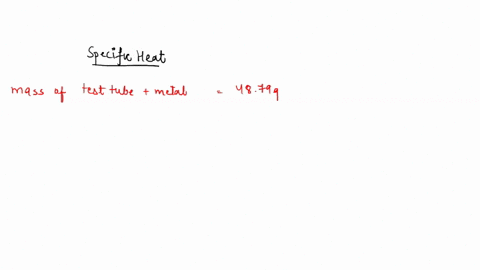 Specific Heat
mass of test tube + metal = 48.79g